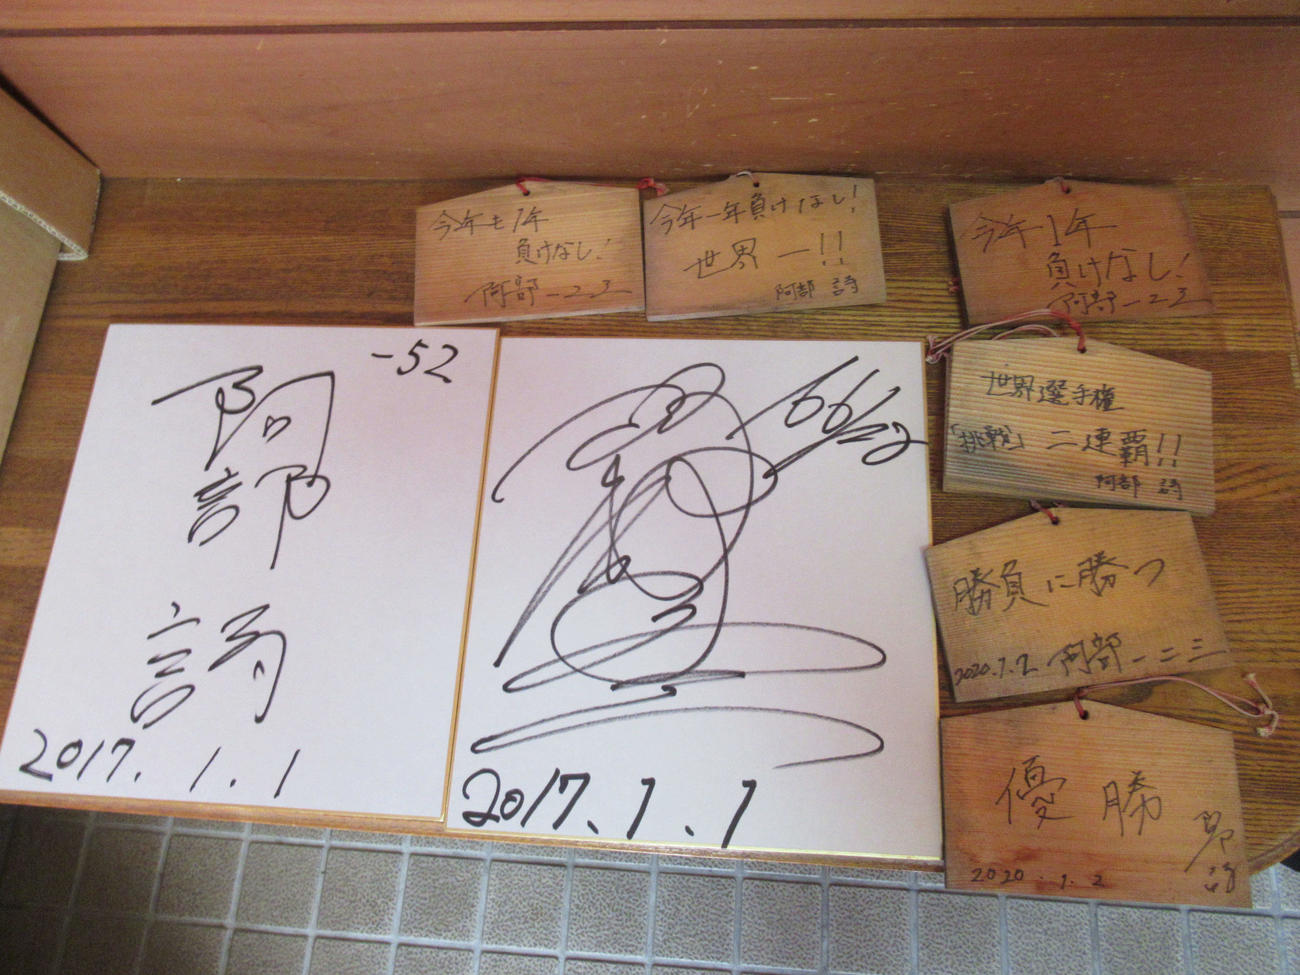 今年も1年
負けなし!
阿部一二三
今年一年負けなし!
世界一!!
阿部 詩
今年1年
負けなし!
阿部一二三
世界選手権
「挑戦」二連覇!!
阿部 詩
勝負に勝つ
2020.1.2 阿部一二三
優勝
2020.1.2
-52
阿部
詩
2017.1.1
66kg
2017.1.1